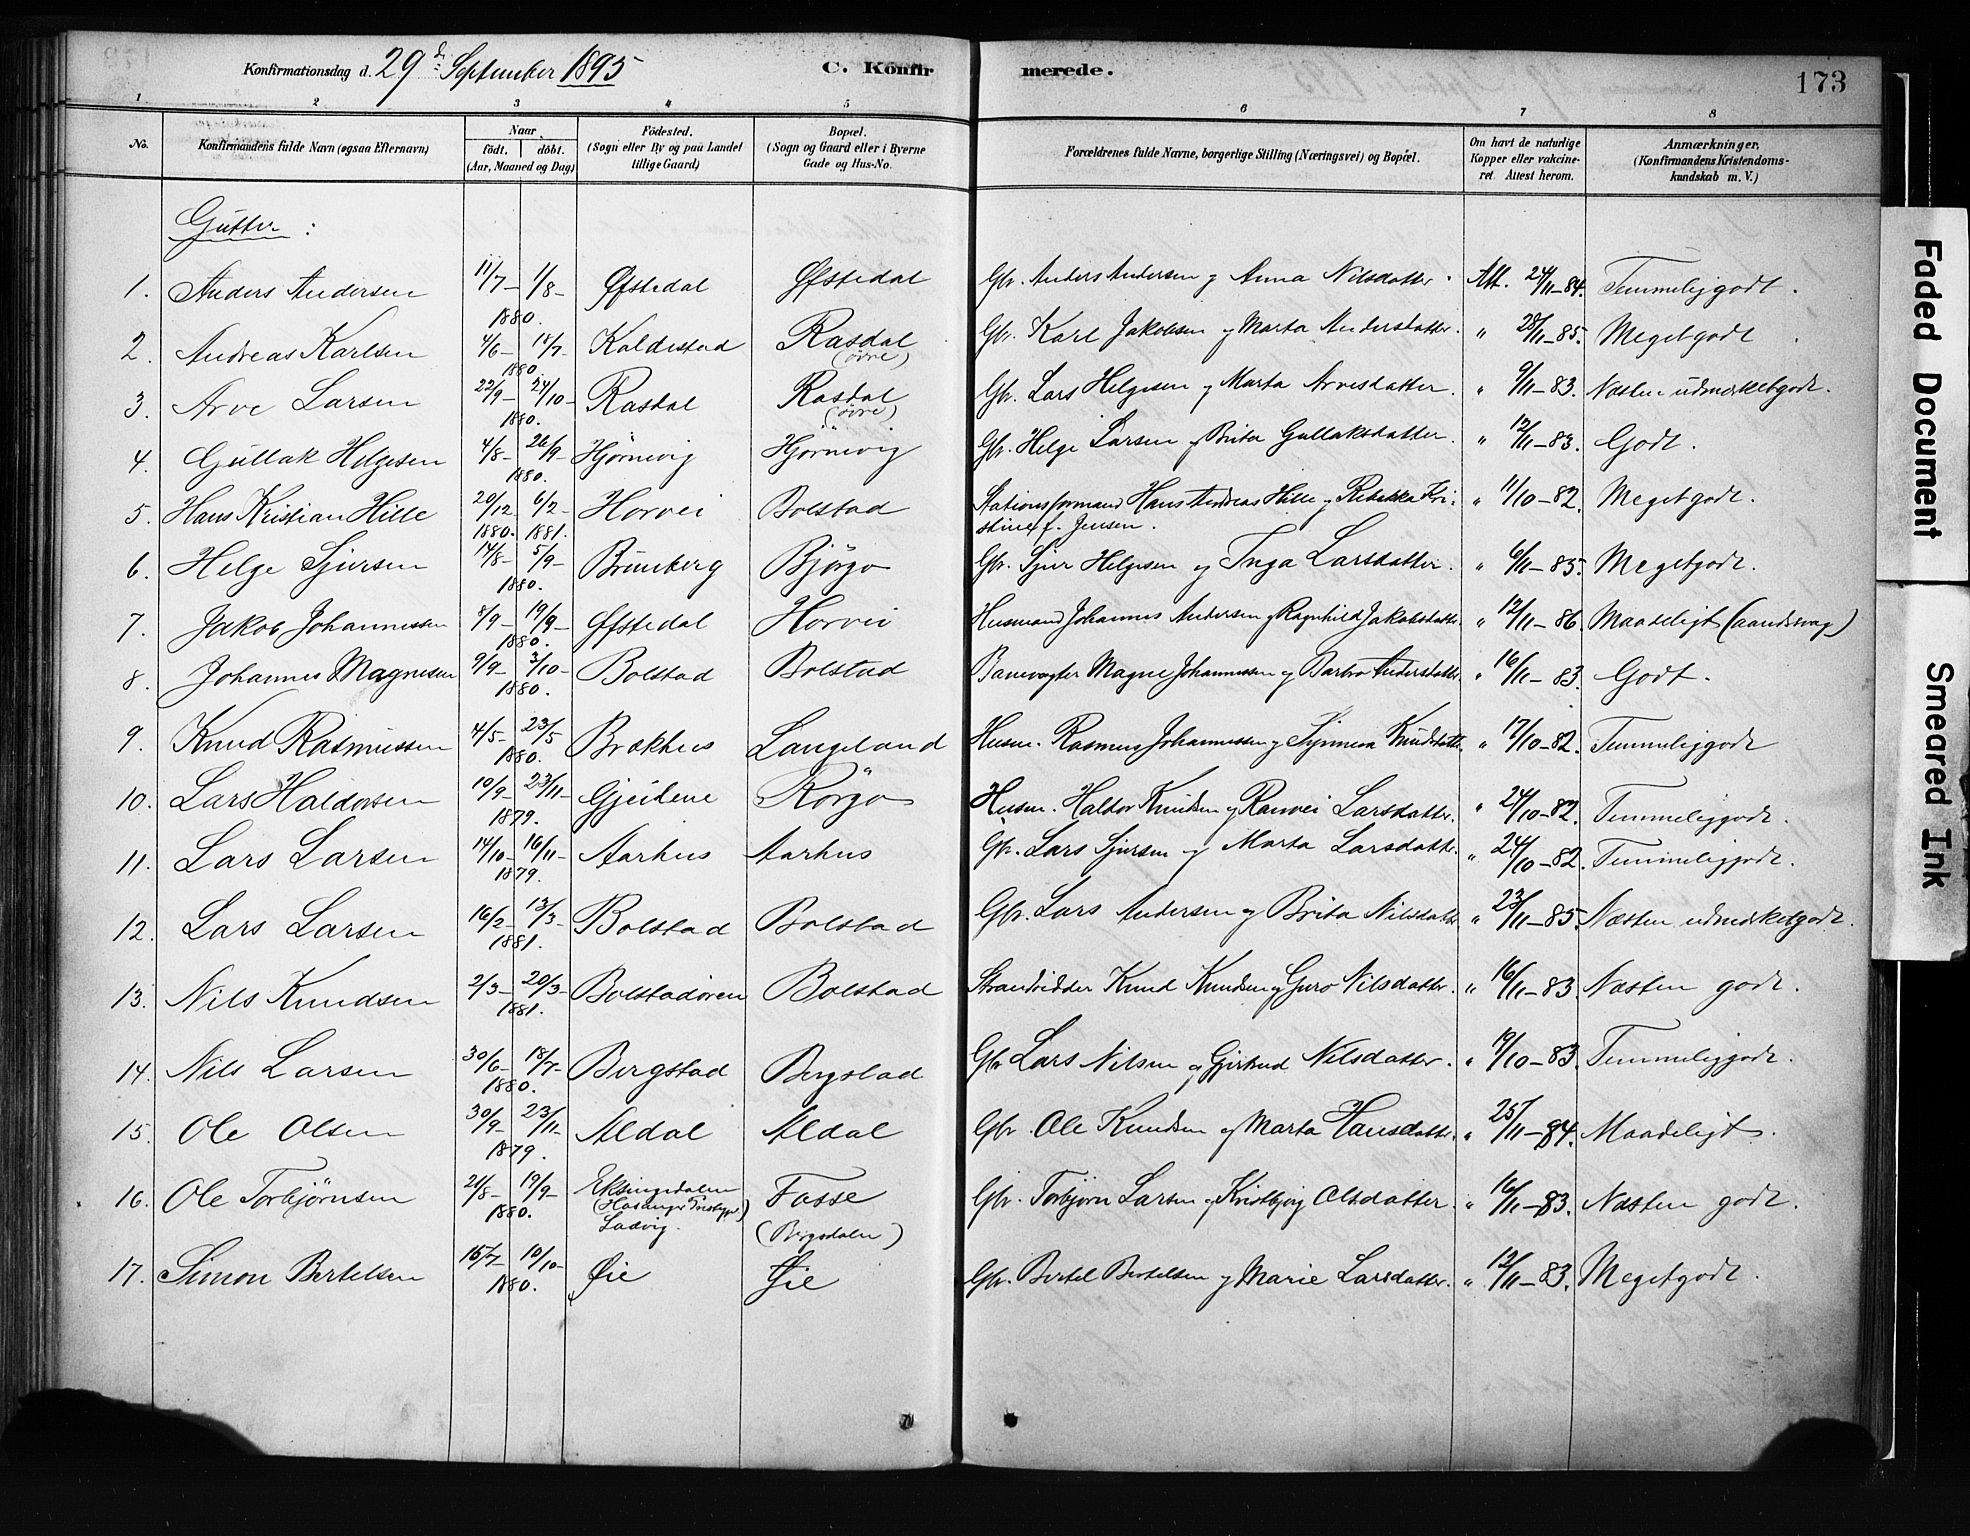 Konfirmationsdag d. 29 d. September 1895 C. Konfirmerede. 173
1 2 3 4 5 6 7 8
No. Konfirmandens fulde Navn (ogsaa Efternavn) Naar født. døbt. (Aar, Maaned og Dag) Fødested. (Sogn eller By og paa Landet tillige Gaard) Bopæl. (Sogn og Gaard eller i Byerne Gade og Hus-No. Forældrenes fulde Navne, borgerlige Stilling (Næringsvei) og Bopæl. Om havt de naturlige Kopper eller vakcineret. Attest herom. Anmærkninger. (Konfirmandens Kristendomskundskab m. V.)
Gutter:
1. Anders Andersen 11/7- 1/8- 1880. Øfstedal Øfstedal Gbr. Anders Andersen og Anna Nilsdatter. Att. 24/11-84. Temmeliggodt.
2. Andreas Karlsen 4/6- 14/7- 1880. Koldestad Rasdal (øvre) Gbr. Karl Jakobsen og Marta Andersdatter. " 28/11-85. Megetgodt.
3. Arve Larsen 22/9- 24/10- 1880. Rasdal Rasdal (øvre) Gbr. Lars Helgesen og Marta Arvesdatter. " 9/11-83. Næsten udmærketgodt.
4. Gullak Helgesen 4/8- 26/9- 1880. Hjørnevig Hjørnevig Gbr. Helge Larsen og Brita Gullaksdatter. " 12/11-83. Godt.
5. Hans Kristian Hille 20/12- 1880. 6/2- 1881. Horvei Bolstad Stationsformand Hans Andreas Hille og Rebekka Kri-
stine f. Jensen. " 11/10-82. Megetgodt.
6. Helge Sjursen 14/8- 5/9- 1880. Brunberg Bjørgo Gbr. Sjur Helgesen og Inga Larsdatter. " 6/11-85. Megetgodt.
7. Jakob Johannessen 8/9- 19/9- 1880. Øfstedal Horvei Husmand Johannes Andersen og Ragnhild Jakobsdatter. " 12/11-86. Maadeligt (aandssvag)
8. Johannes Magnesen 9/9- 3/10- 1880. Bolstad Bolstad Banevogter Magne Johannessen og Barbro Andersdatter. " 16/11-83. Godt.
9. Knud Rasmussen 4/5- 23/5 1880. Brækhus Langeland Husm. Rasmus Johannessen og Synneva Knudsdatter. " 17/10-82. Temmeliggodt
10. Lars Haldorsen 10/9- 23/11- 1879. Gjeidene Rörgo Husm. Haldor Knudsen og Ranvei Larsdatter. " 24/10-82. Temmeliggodt.
11. Lars Larsen 14/10- 16/11- 1879. Aarhus Aarhus Gbr. Lars Sjursen og Marta Larsdatter. " 24/10-82. Temmeliggodt.
12. Lars Larsen 16/2- 13/3- 1881. Bolstad Bolstad Gbr. Lars Andersen og Brita Nilsdatter " 23/11-85. Næsten udmærketgodt.
13. Nils Knudsen 2/3- 20/3- 1881. Bolstadøren Bolstad Strandsidder Knud Knudsen og Guro Nilsdatter. " 16/11-83. Næsten godt.
14. Nils Larsen 30/6- 18/7- 1880. Bergstad Bergstad Gbr Lars Nilsen og Gjertrud Nilsdatter. " 19/10-83. Temmeliggodt.
15. Ole Olsen 30/9- 23/11- 1879. Aldal Aldal Gbr. Ole Knudsen og Marta Hansdatter. " 25/11-84. Maadeligt.
16. Ole Torbjørnsen 21/8- 19/9- 1880. Eksingedalen Ladvig. Fosse (Bergsdalen) Gbr. Torbjørn Larsen og Kristbjørg Olsdatter. " 16/11-83. Næsten godt.
17. Simon Bertelsen 15/7- 10/10- 1880. Øie Øie Gbr. Bertel Bertelsen og Marie Larsdatter. " 12/11-83. Megetgodt.
Faded Document
Smeared Ink